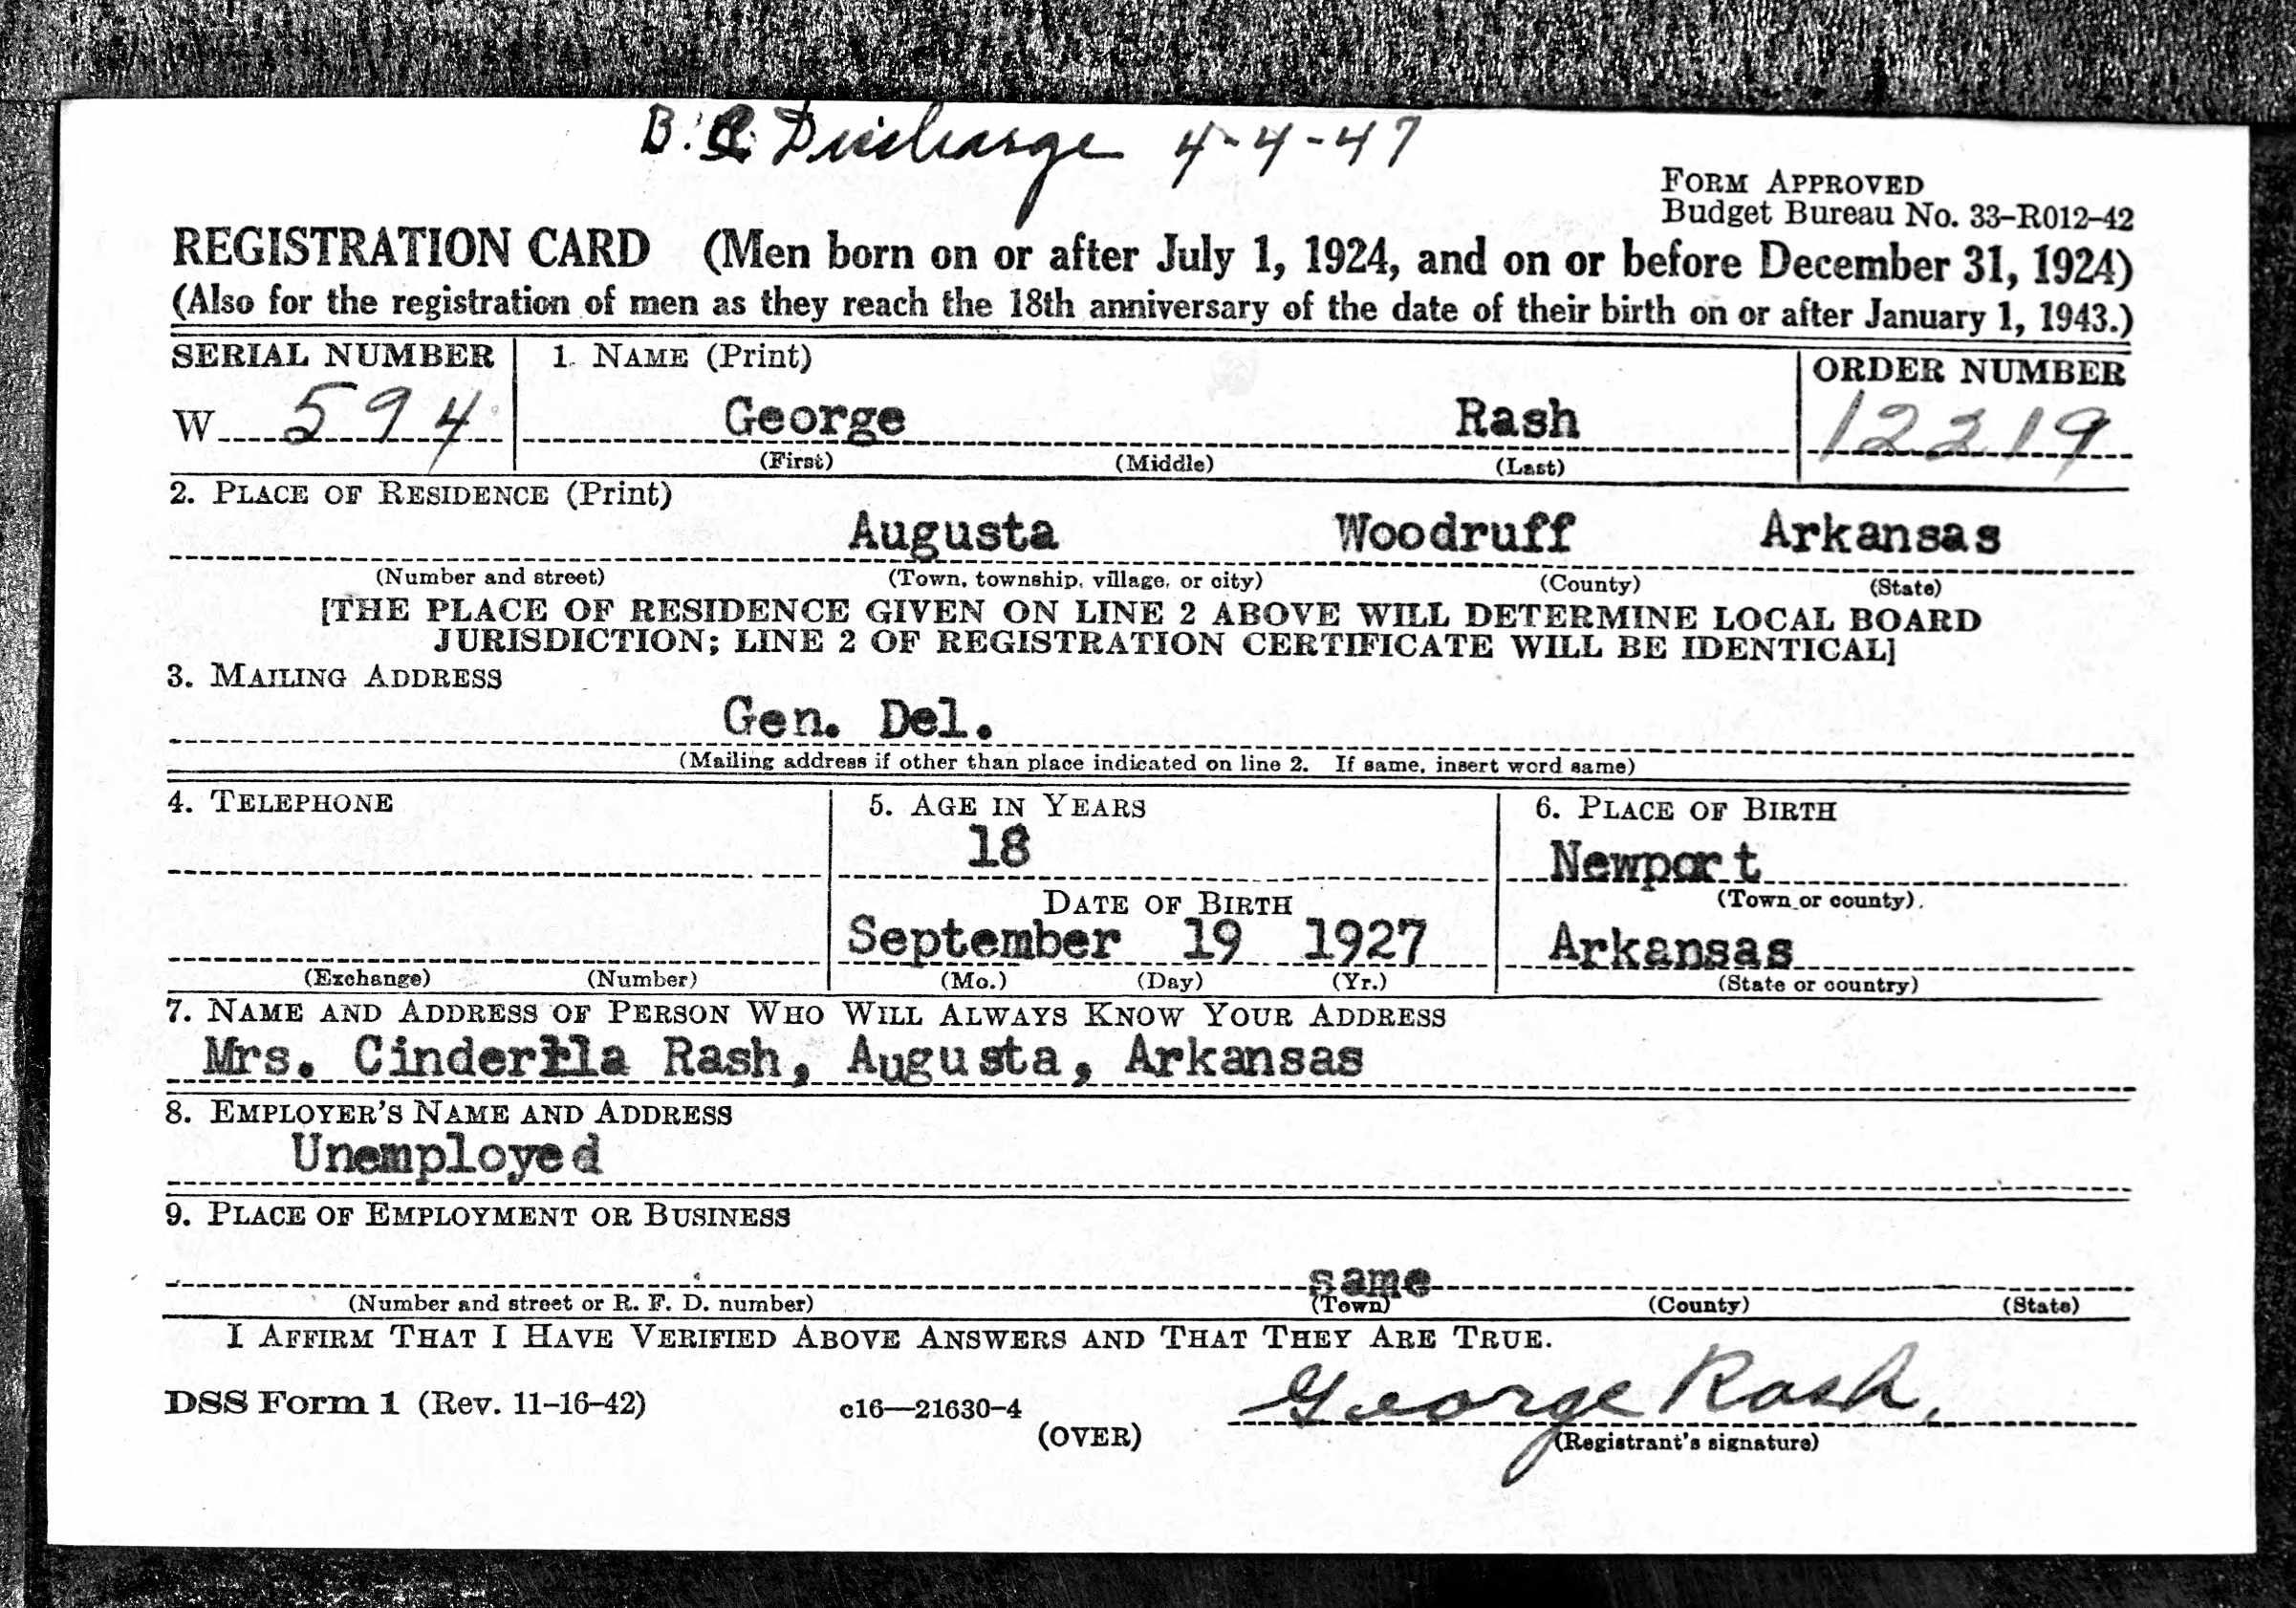 B. C. Discharge 4-4-47
FORM APPROVED
Budget Bureau No. 33-R012-42
REGISTRATION CARD (Men born on or after July 1, 1924, and on or before December 31, 1924)
(Also for the registration of men as they reach the 18th anniversary of the date of their birth on or after January 1, 1943.)
SERIAL NUMBER 1. NAME (Print) ORDER NUMBER
W 594 George Rash 12219
(First) (Middle) (Last)
2. PLACE OF RESIDENCE (Print)
Augusta Woodruff Arkansas
(Number and street) (Town, township, village, or city) (County) (State)
[THE PLACE OF RESIDENCE GIVEN ON LINE 2 ABOVE WILL DETERMINE LOCAL BOARD
JURISDICTION; LINE 2 OF REGISTRATION CERTIFICATE WILL BE IDENTICAL]
3. MAILING ADDRESS
Gen. Del.
(Mailing address if other than place indicated on line 2. If same, insert word same)
4. TELEPHONE 5. AGE IN YEARS 6. PLACE OF BIRTH
18 Newport
DATE OF BIRTH (Town or county)
September 19 1927 Arkansas
(Exchange) (Number) (Mo.) (Day) (Yr.) (State or country)
7. NAME AND ADDRESS OF PERSON WHO WILL ALWAYS KNOW YOUR ADDRESS
Mrs. Cinderlla Rash, Augusta, Arkansas
8. EMPLOYER'S NAME AND ADDRESS
Unemployed
9. PLACE OF EMPLOYMENT OR BUSINESS
same
(Number and street or R. F. D. number) (Town) (County) (State)
I AFFIRM THAT I HAVE VERIFIED ABOVE ANSWERS AND THAT THEY ARE TRUE.
George Rash.
DSS Form 1 (Rev. 11-16-42) c16—21630-4
(OVER) (Registrant's signature)